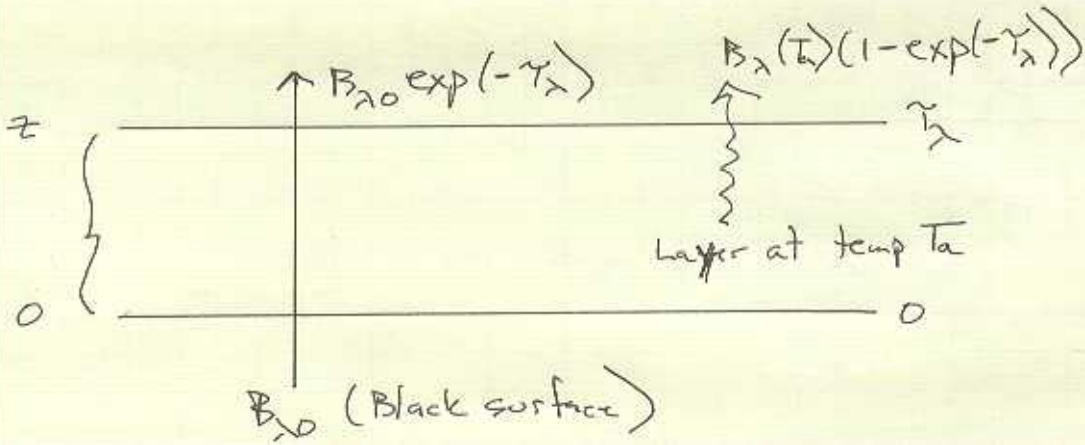 B_λ0 exp(-τ_λ)
B_λ(T_a)(1-exp(-τ_λ))
z
τ_λ
Layer at temp T_a
0
0
B_λ0 (Black surface)